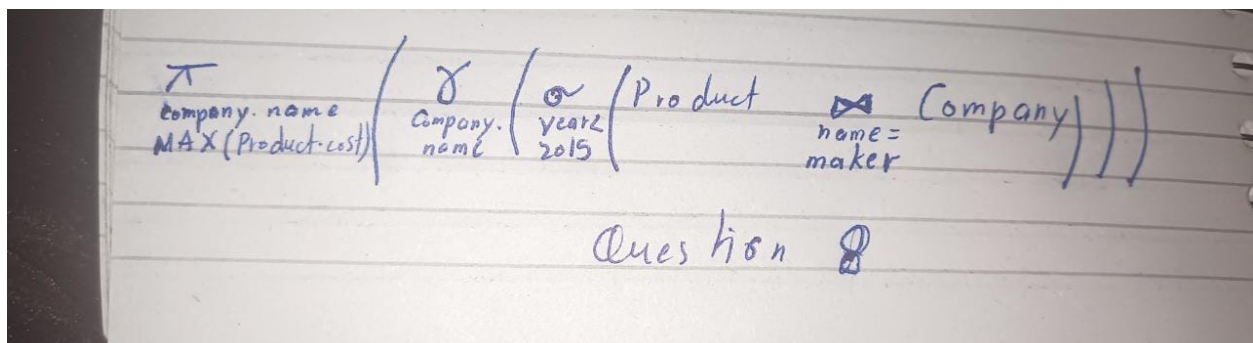 π company. name MAX(Product.cost) ( γ Company. name ( σ year< 2015 ( Product ⋈ name = maker Company ) ) )
Question 8